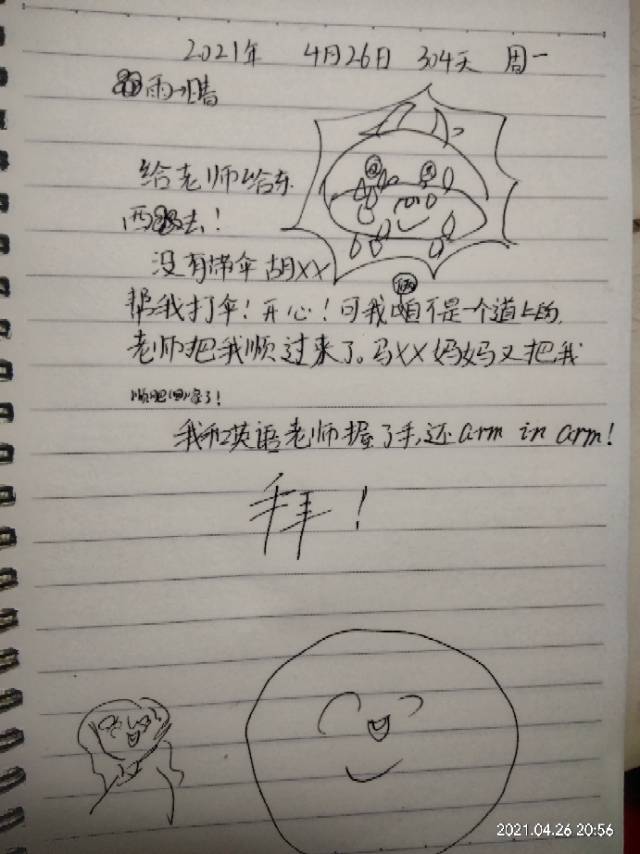 2021年 4月26日 304天 周一
雨→晴
给老师给东
西去！
没有带伞 胡XX
帮我打伞！开心！可我俩不是一个道上的,
老师把我顺过来了。马XX妈妈又把我
顺回家了！
我和英语老师握了手,还arm in arm！
拜！
2021.04.26 20:56